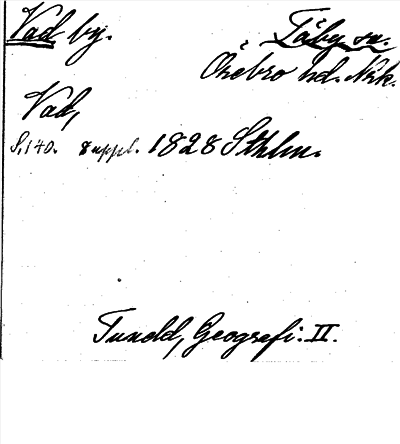 Vad by. Täby sn.
Örebro hd. Nrk.
Vad,
S. 140. 8 uppl. 1828 Sthlm.
Tuneld, Geografi. II.